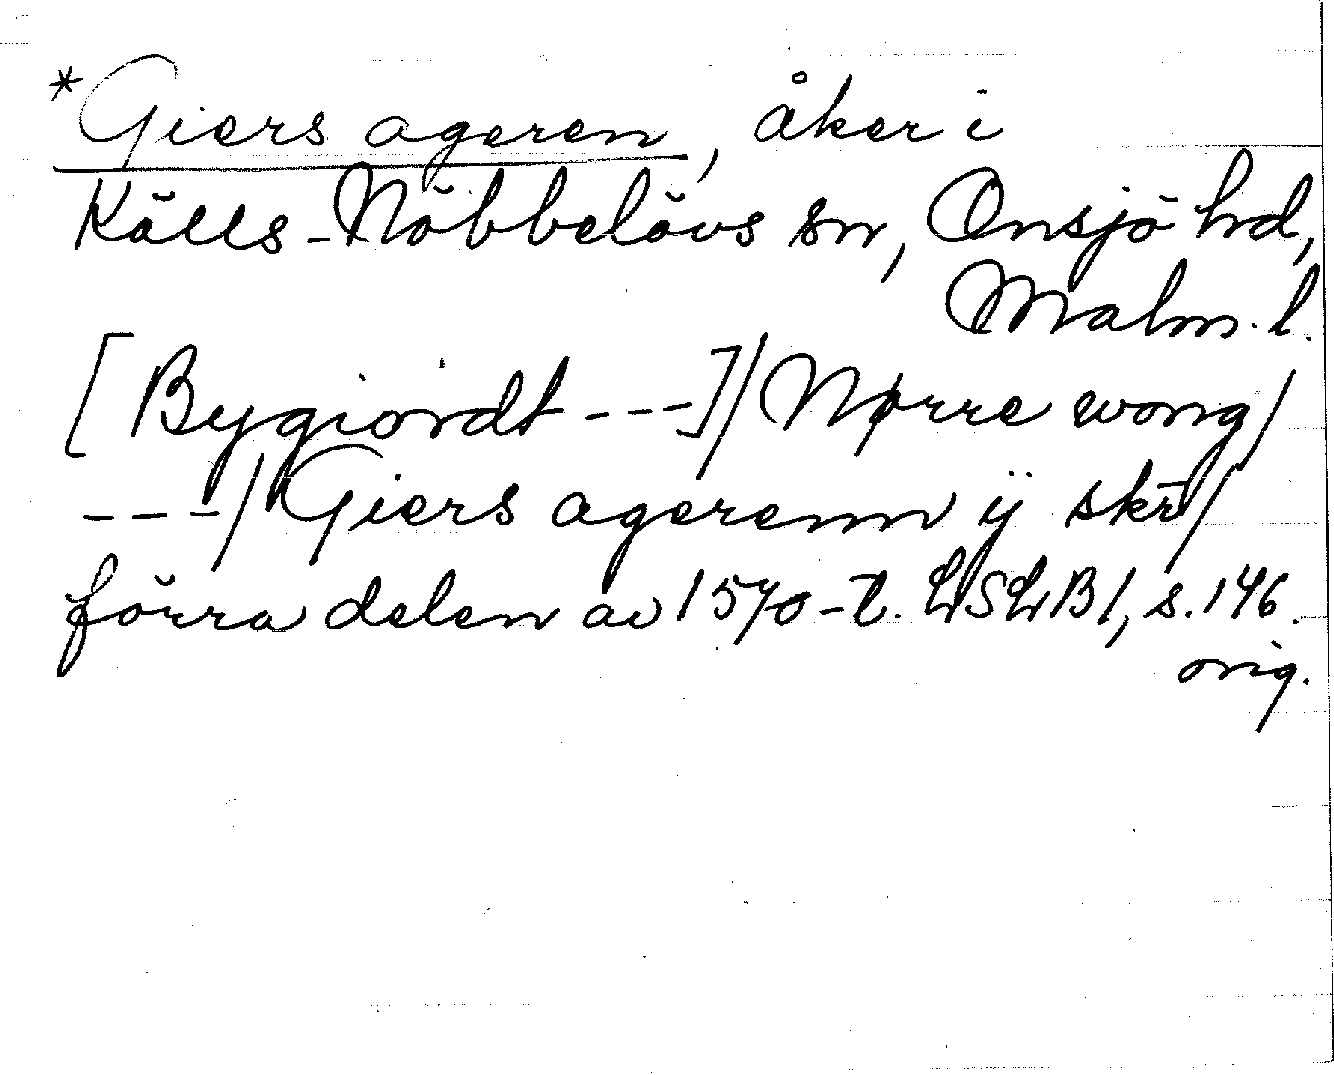 *Giers ageren, åker i
Källs-Nöbbelövs sn, Onsjö hd,
Malm. l.
[Bygiordt ---]/Nørre wong/
---/Giers agerenn ÿ skr/
förra delen av 1570-t. LSLB1, s. 146.
orig.